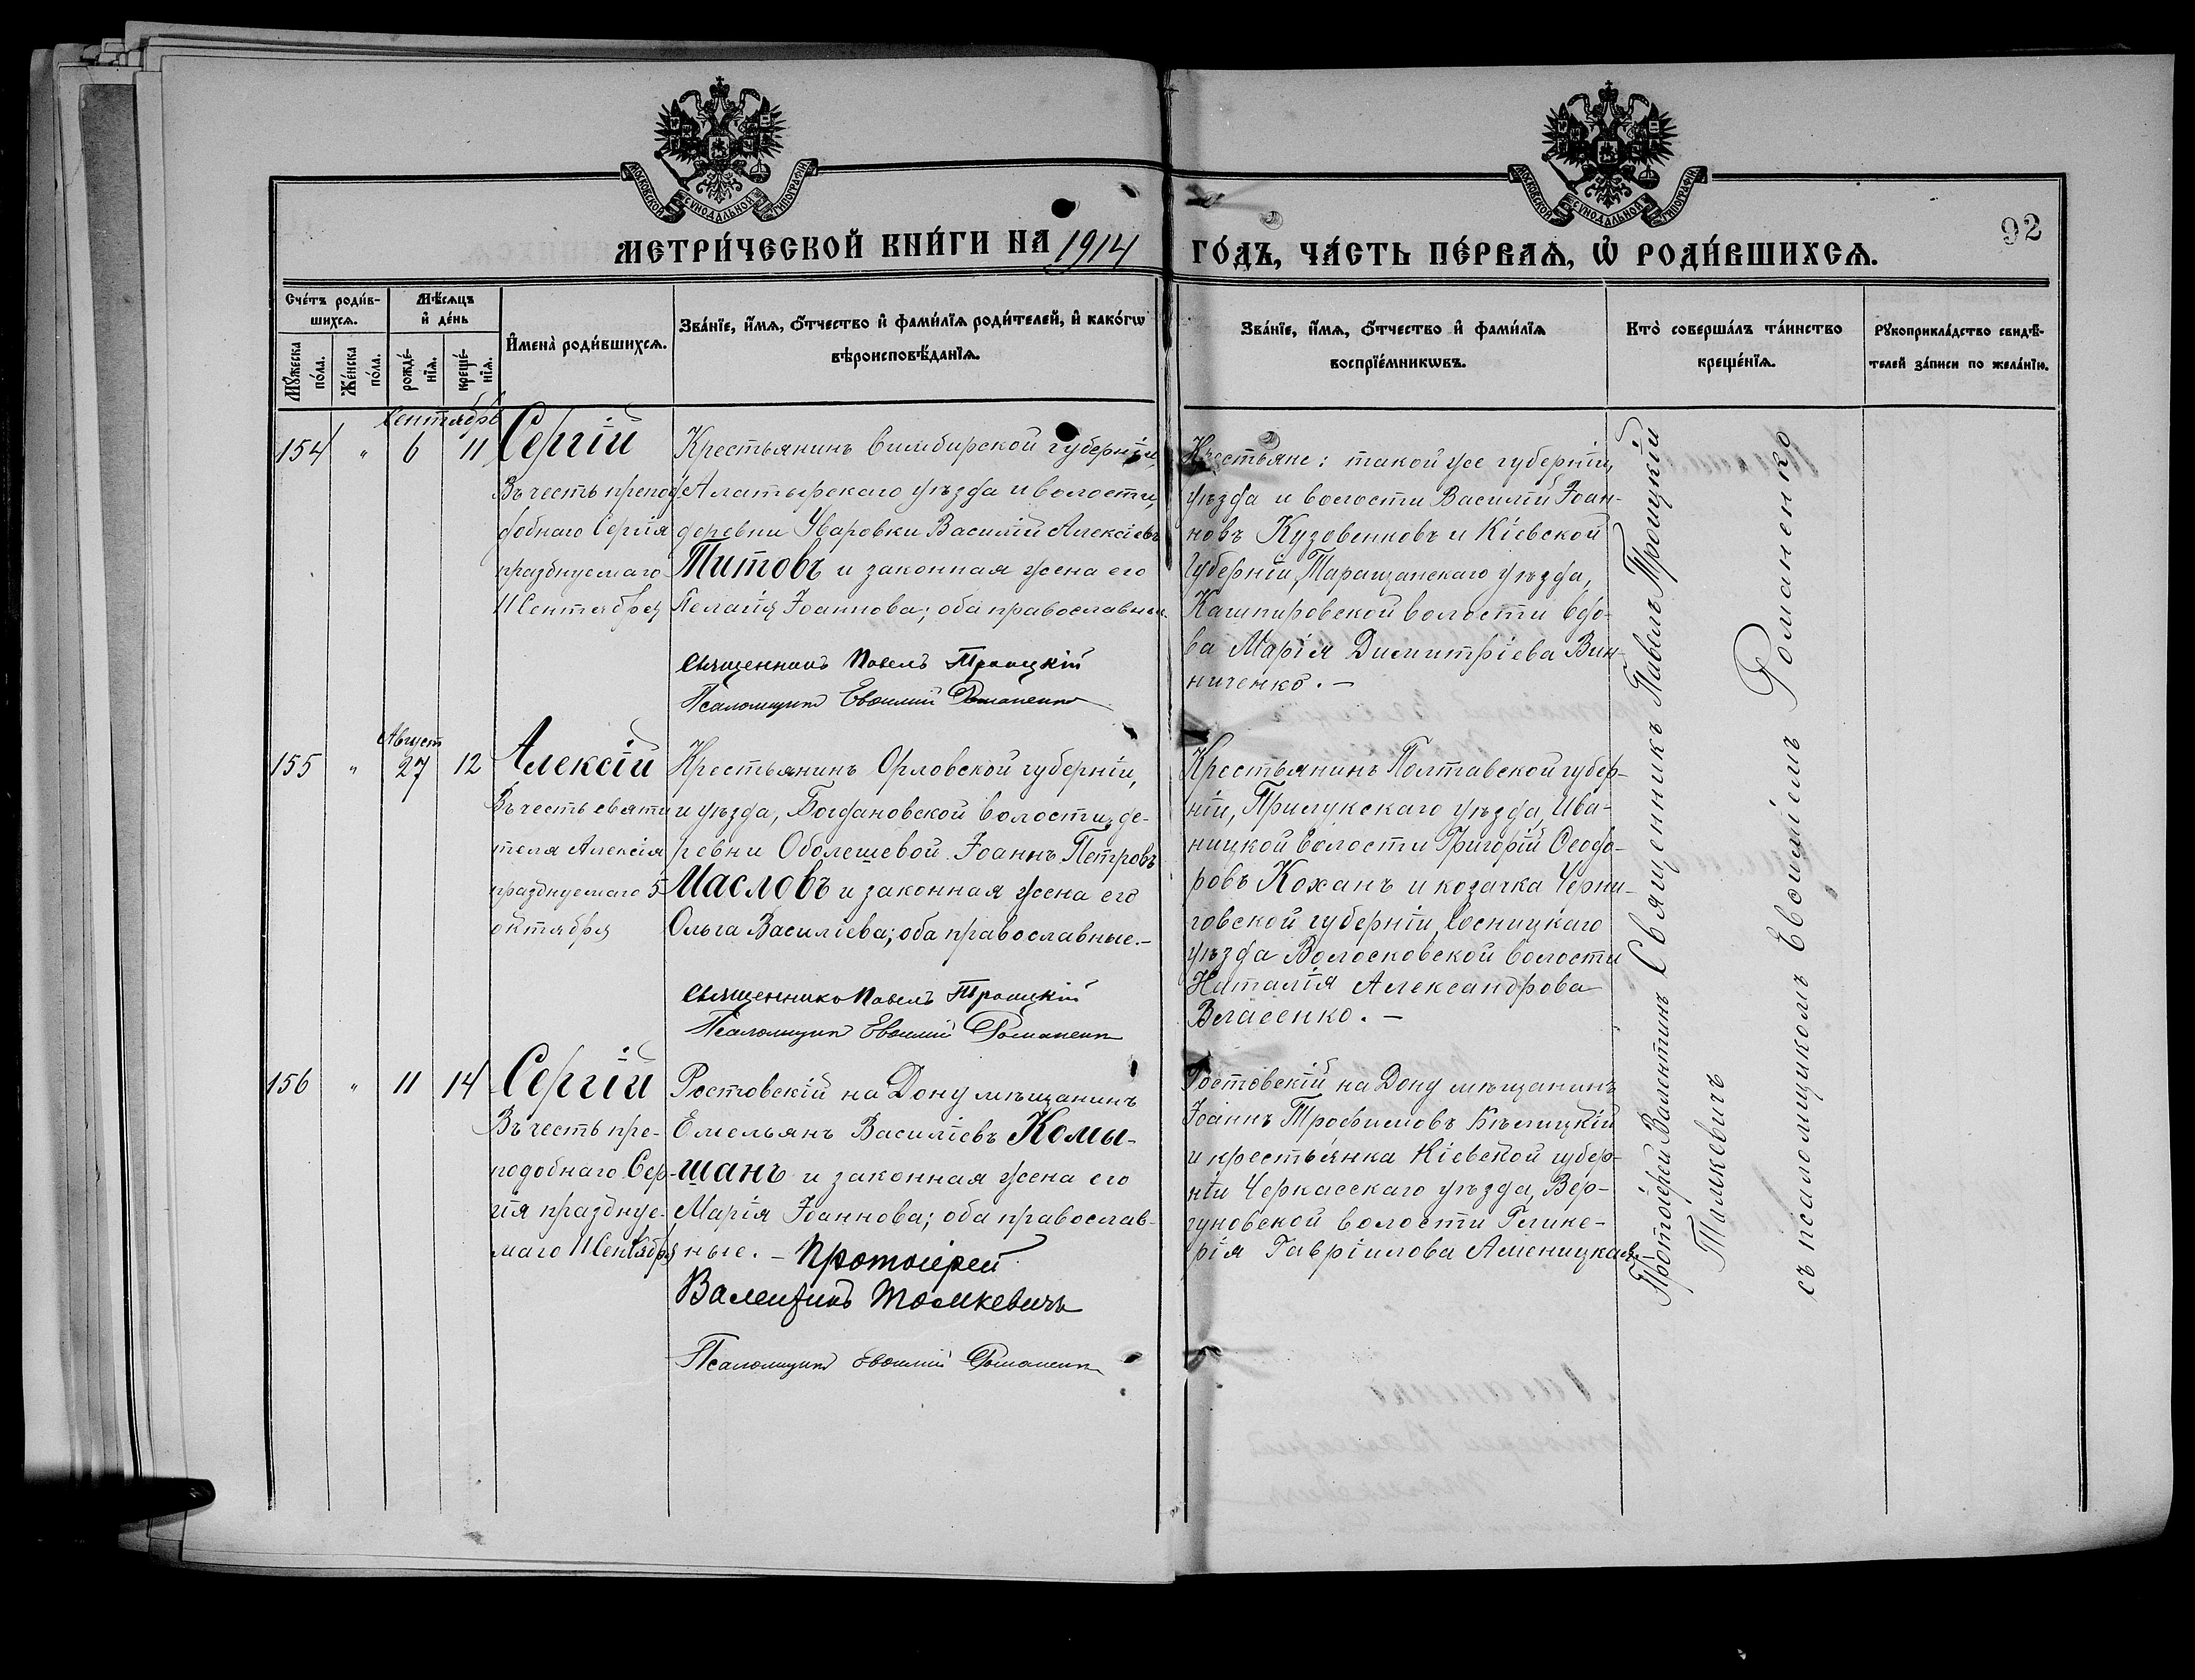 МОСКОВСКОЙ СѴНОДАЛЬНОЙ ТИПОГРАФІИ
МОСКОВСКОЙ СѴНОДАЛЬНОЙ ТИПОГРАФІИ
92
МЕТРИ́ЧЕСКОЙ КНИ́ГИ НА 1914
ГО́ДЪ, ЧА́СТЬ ПЕ́РВАѦ, Ѡ РОДИ́ВШИХСѦ.
Сче́тъ роди́в-
шихсѧ.
Мꙋ́жеска по́ла.
Же́нска по́ла.
Мѣ́сѧцъ
и҆ де́нь
рожде́-
нїѧ.
креще́-
нїѧ.
И҆мена̀ роди́вшихсѧ.
Зва́нїе, и҆́мѧ, ѻ҆́тчество и҆ фами́лїѧ роди́телей, и҆ како́гѡ
вѣроисповѣ́данїѧ.
Зва́нїе, и҆́мѧ, ѻ҆́тчество и҆ фами́лїѧ
воспрїе́мникѡвъ.
Кто̀ соверша́лъ та́инство
креще́нїѧ.
Рꙋкоприкла́дство свидѣ́-
телей за́писи по жела́нїю.
Сентябрь
154 " 6 11
Сергій
Въ честь препо-
добнаго Сергія
празднуемаго
11 Сентября
Крестьянинъ Симбирской губерніи,
Алатырскаго уѣзда и волости,
деревни Уваровки Василій Алексіевъ
Титовъ и законная жена его
Пелагія Іоаннова; оба православные.
Священникъ Павелъ Троицкій
Псаломщикъ Евѳимій Романенко
Крестьяне: такой же губерніи,
уѣзда и волости Василій Іоан-
новъ Кузовенковъ и Кіевской
губерніи, Таращанскаго уѣзда,
Кашперовской волости вдо-
ва Марія Димитріева Вин-
ниченко. —
Август
155 " 27 12
Алексій
Въ честь святи-
теля Алексія
празднуемаго 5
октября
Крестьянинъ Орловской губерніи,
и уѣзда, Богдановской волости, де-
ревни Оболешевой Іоаннъ Петровъ
Масловъ и законная жена его
Ольга Василіева; оба православные. —
Священникъ Павелъ Троицкій
Псаломщикъ Евѳимій Романенко
Крестьянинъ Полтавской губер-
ніи, Прилукскаго уѣзда, Ива-
ницкой волости Григорій Ѳеодо-
ровъ Коханъ и козачка Черни-
говской губерніи, Сосницкаго
уѣзда Волосковской волости
Наталія Александрова
Власенко. —
156 " 11 14
Сергій
Въ честь пре-
подобнаго Сер-
гія праздную-
маго 11 Сентября
Ростовскій на Дону мѣщанинъ
Емельянъ Василіевъ Комы-
шанъ и законная жена его
Марія Іоаннова; оба православ-
ные. — Протоіерей
Валентинъ Толмкевичъ
Псаломщикъ Евѳимій Романенко
Ростовскій на Дону мѣщанинъ
Іоаннъ Трофимовъ Бѣлицкій
и крестьянка Кіевской губер-
ніи Черкасскаго уѣзда, Вер-
гуновской волости Глике-
рія Гавріилова
Священникъ Павелъ Троицкій
Протоіерей Валентинъ
съ псаломщикомъ Евѳиміемъ Романенко